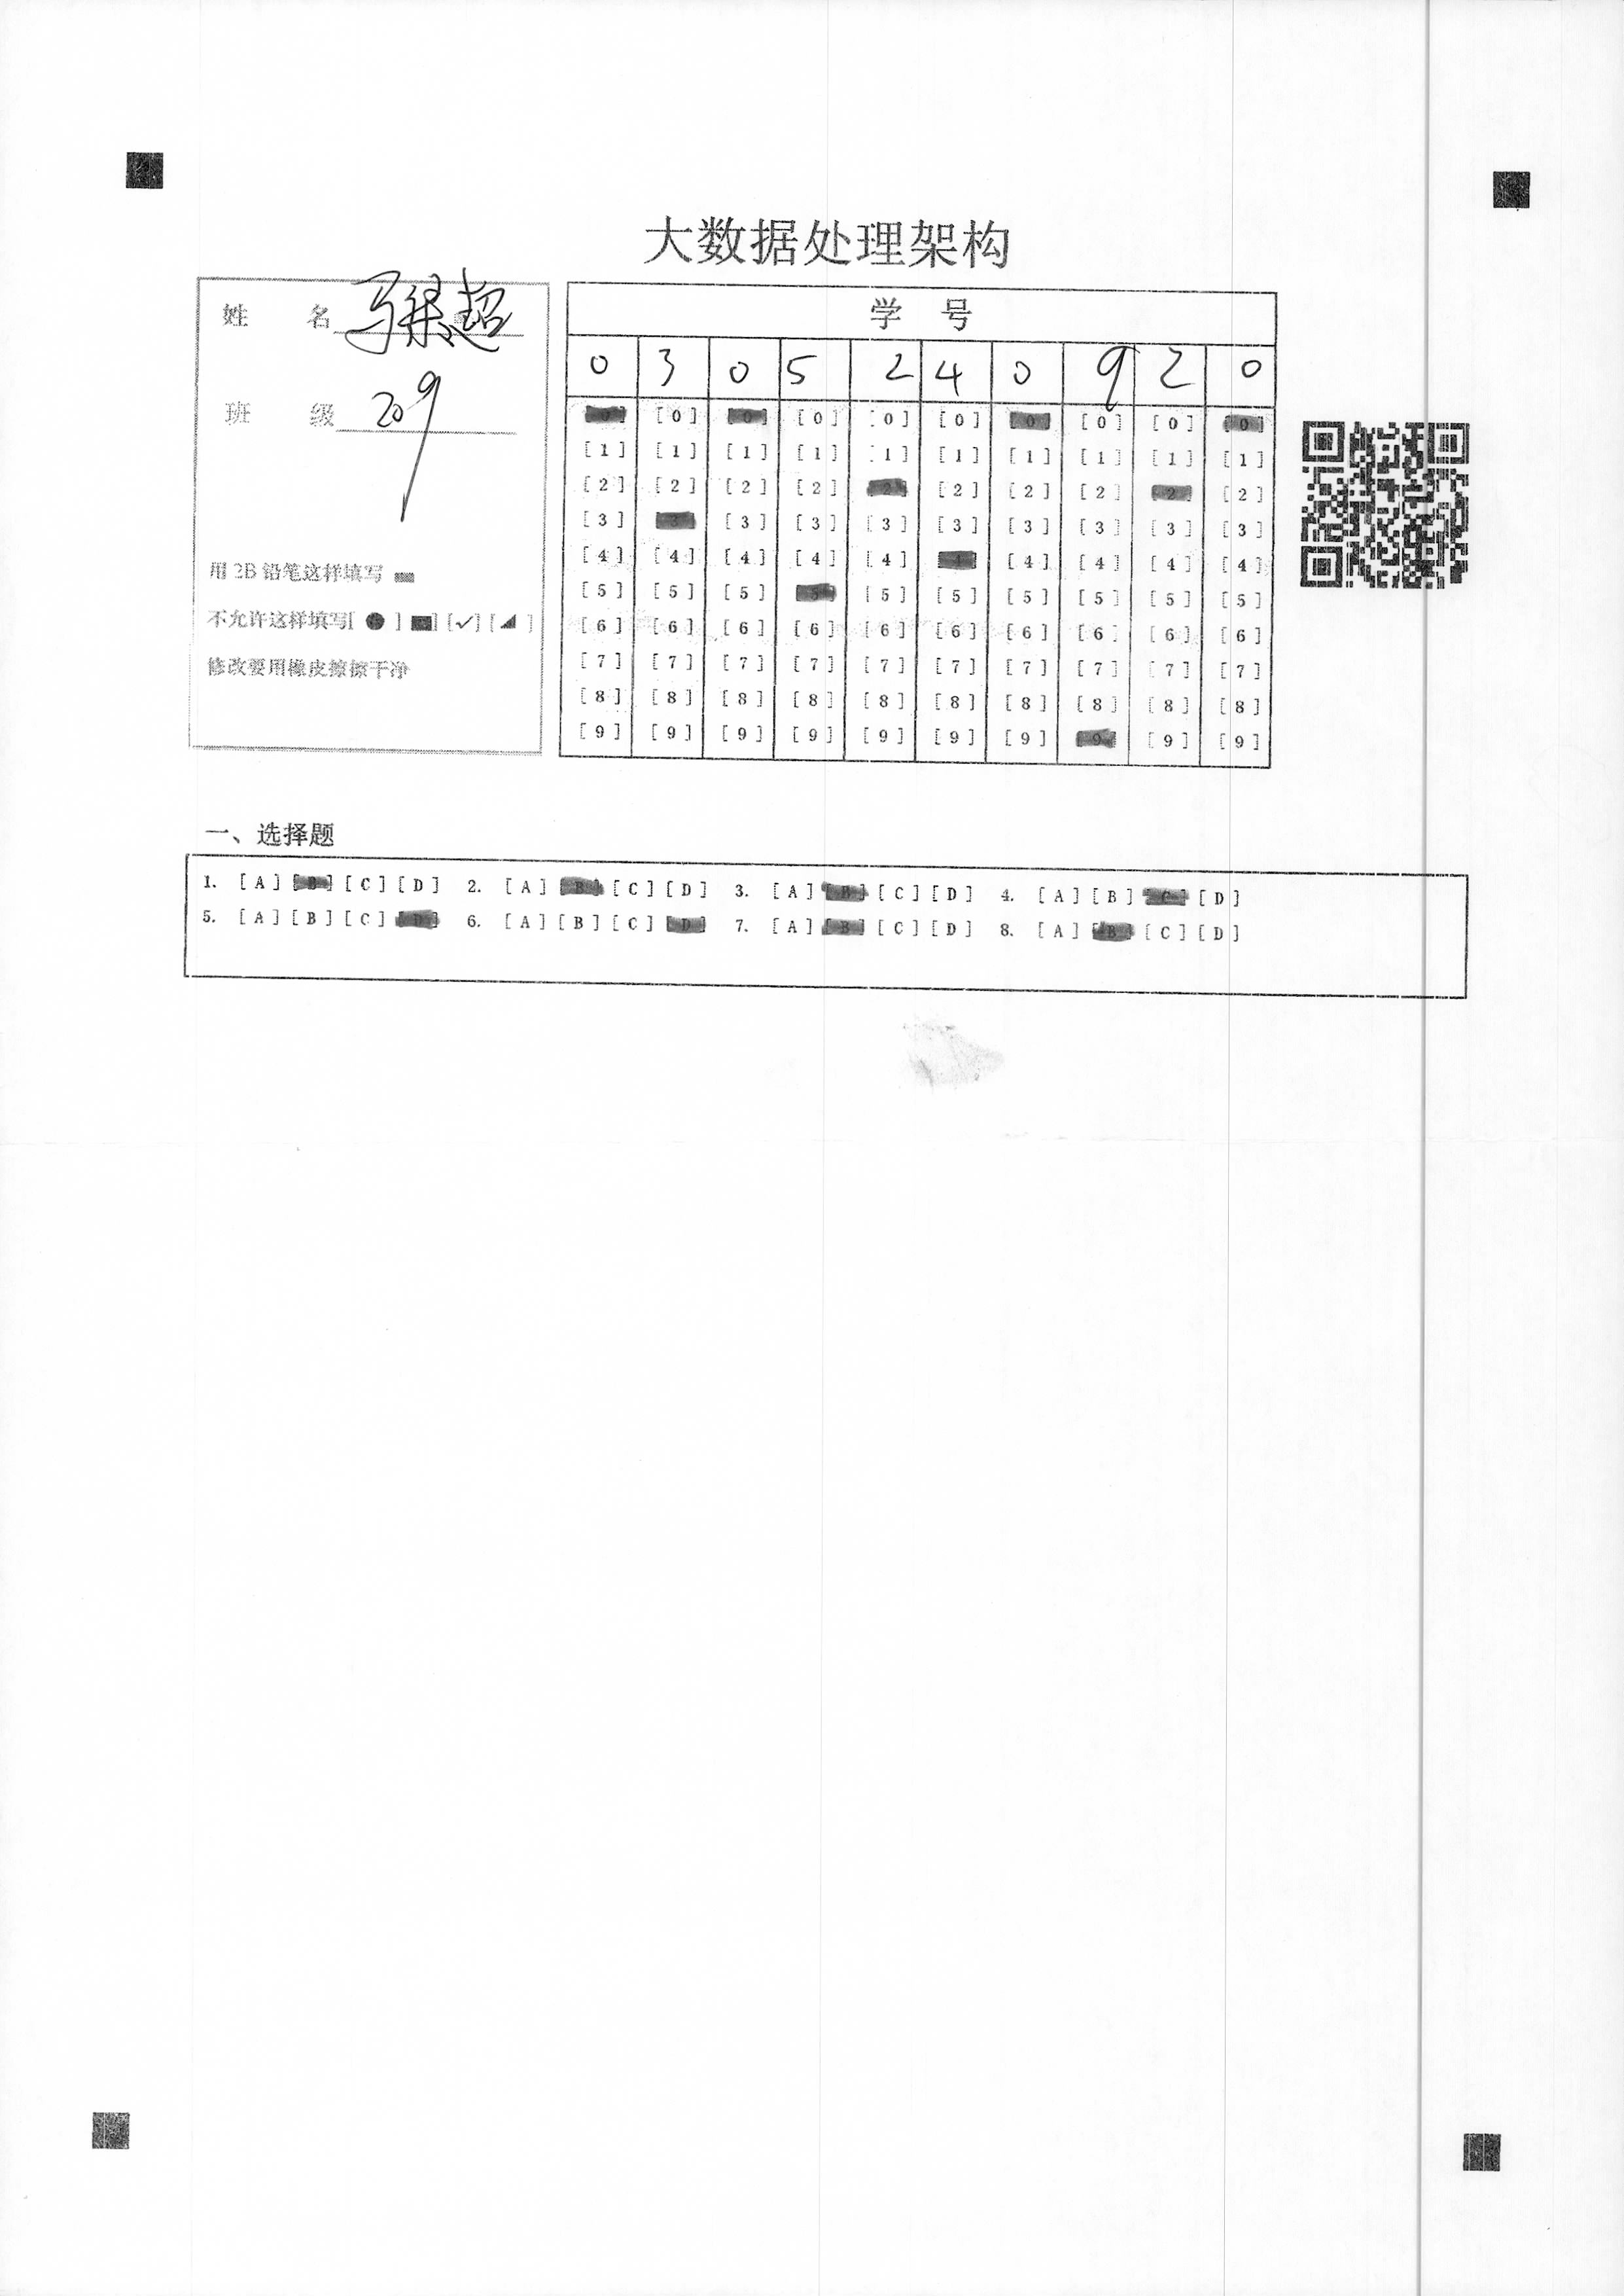 大数据处理架构
姓 名 马梁超
班 级 209
用 2B 铅笔这样填写
不允许这样填写[ ● ] [■] [✓] [◢ ]
修改要用橡皮擦擦干净
学 号
0 3 0 5 2 4 0 9 2 0
[0] [0] [0] [0] [0] [0] [0] [0] [0] [0]
[1] [1] [1] [1] [1] [1] [1] [1] [1] [1]
[2] [2] [2] [2] [2] [2] [2] [2] [2] [2]
[3] [3] [3] [3] [3] [3] [3] [3] [3] [3]
[4] [4] [4] [4] [4] [4] [4] [4] [4] [4]
[5] [5] [5] [5] [5] [5] [5] [5] [5] [5]
[6] [6] [6] [6] [6] [6] [6] [6] [6] [6]
[7] [7] [7] [7] [7] [7] [7] [7] [7] [7]
[8] [8] [8] [8] [8] [8] [8] [8] [8] [8]
[9] [9] [9] [9] [9] [9] [9] [9] [9] [9]
一、选择题
1. [A] [B] [C] [D] 2. [A] [B] [C] [D] 3. [A] [B] [C] [D] 4. [A] [B] [C] [D]
5. [A] [B] [C] [D] 6. [A] [B] [C] [D] 7. [A] [B] [C] [D] 8. [A] [B] [C] [D]